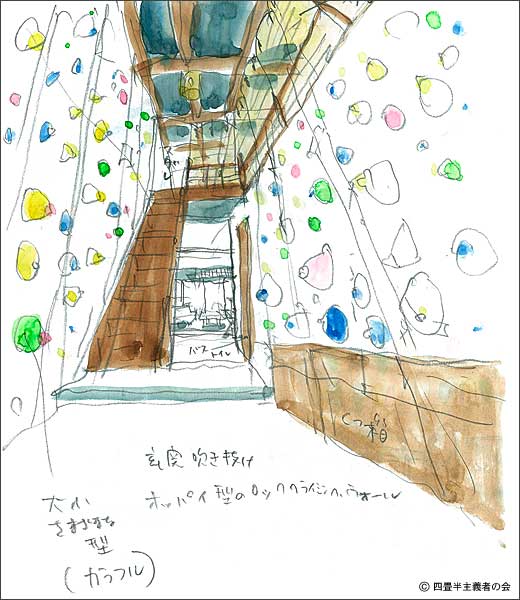 バス
トイレ
くつ箱
玄関 吹き抜け
オッパイ型のロッククライミングウォール
大小
さまざまな
型
(カラフル)
© 四畳半主義者の会